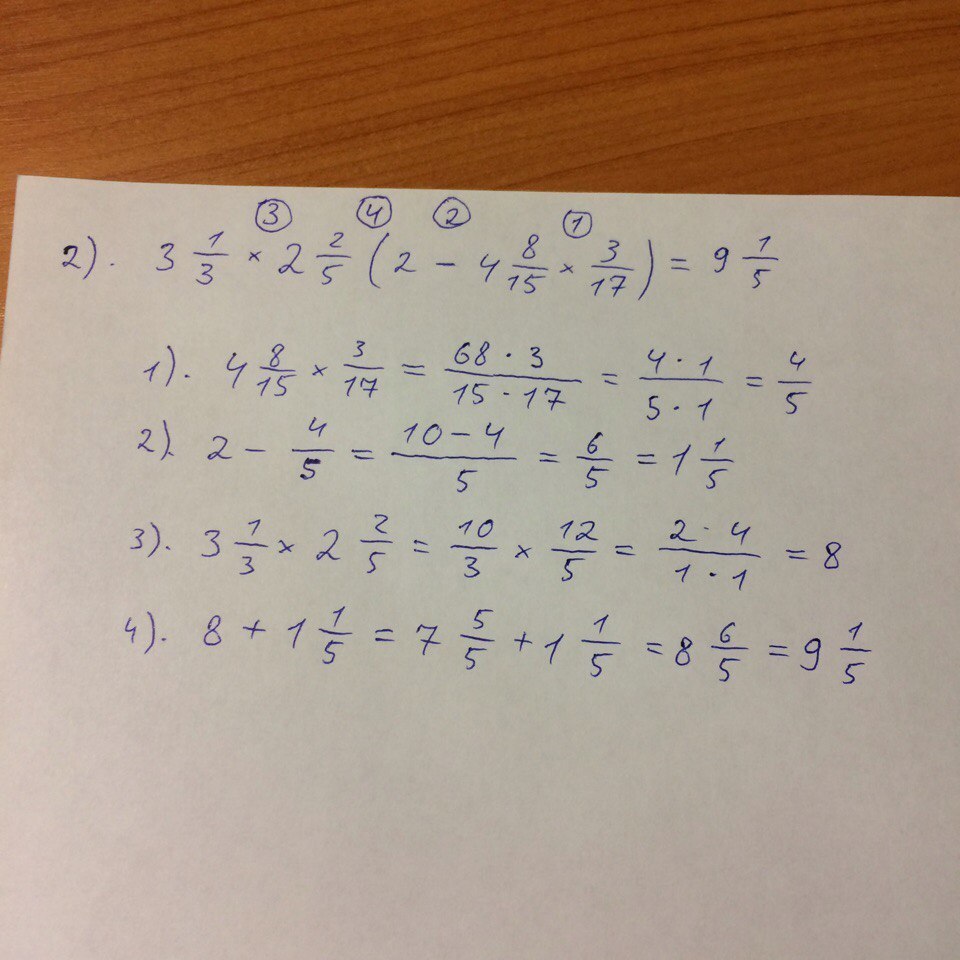 ③ ④ ② ①
2). 3 1/3 × 2 2/5 (2 − 4 8/15 × 3/17) = 9 1/5
1). 4 8/15 × 3/17 = 68 · 3/15 · 17 = 4 · 1/5 · 1 = 4/5
2). 2 − 4/5 = 10 − 4/5 = 6/5 = 1 1/5
3). 3 1/3 × 2 2/5 = 10/3 × 12/5 = 2 · 4/1 · 1 = 8
4). 8 + 1 1/5 = 7 5/5 + 1 1/5 = 8 6/5 = 9 1/5